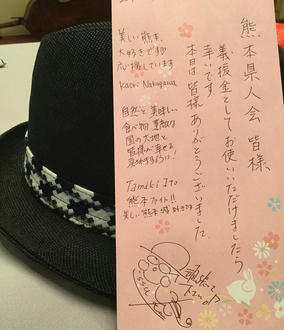 熊本県人会 皆様
義援金としてお使いいただけましたら
幸いです
本日は皆様ありがとうございました
美しい熊本、
大好きです
応援しています
Kaori Nakagawa
自然と美味しい
食べ物 豊富な
国の大地と
皆様が幸せで
Tamaki Ito
熊本ファイト!!
美しい熊本城好きです